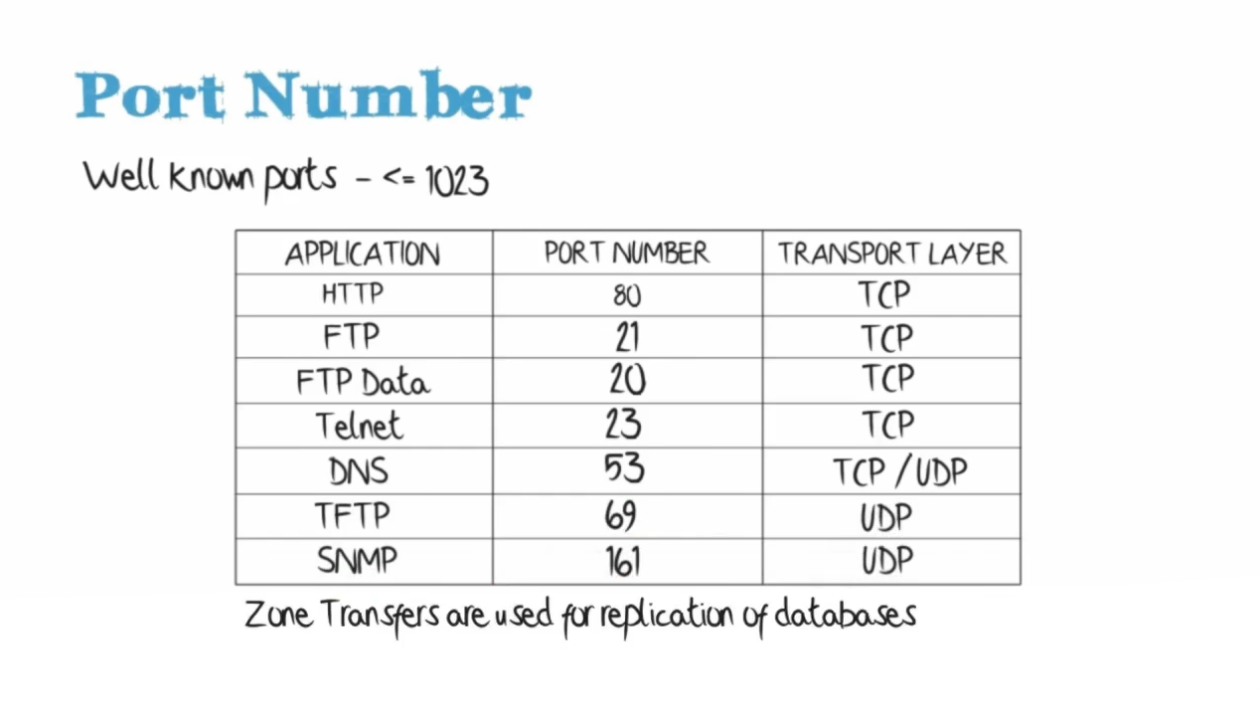 Port Number
Well known ports - <= 1023
APPLICATION PORT NUMBER TRANSPORT LAYER
HTTP 80 TCP
FTP 21 TCP
FTP Data 20 TCP
Telnet 23 TCP
DNS 53 TCP / UDP
TFTP 69 UDP
SNMP 161 UDP
Zone Transfers are used for replication of databases